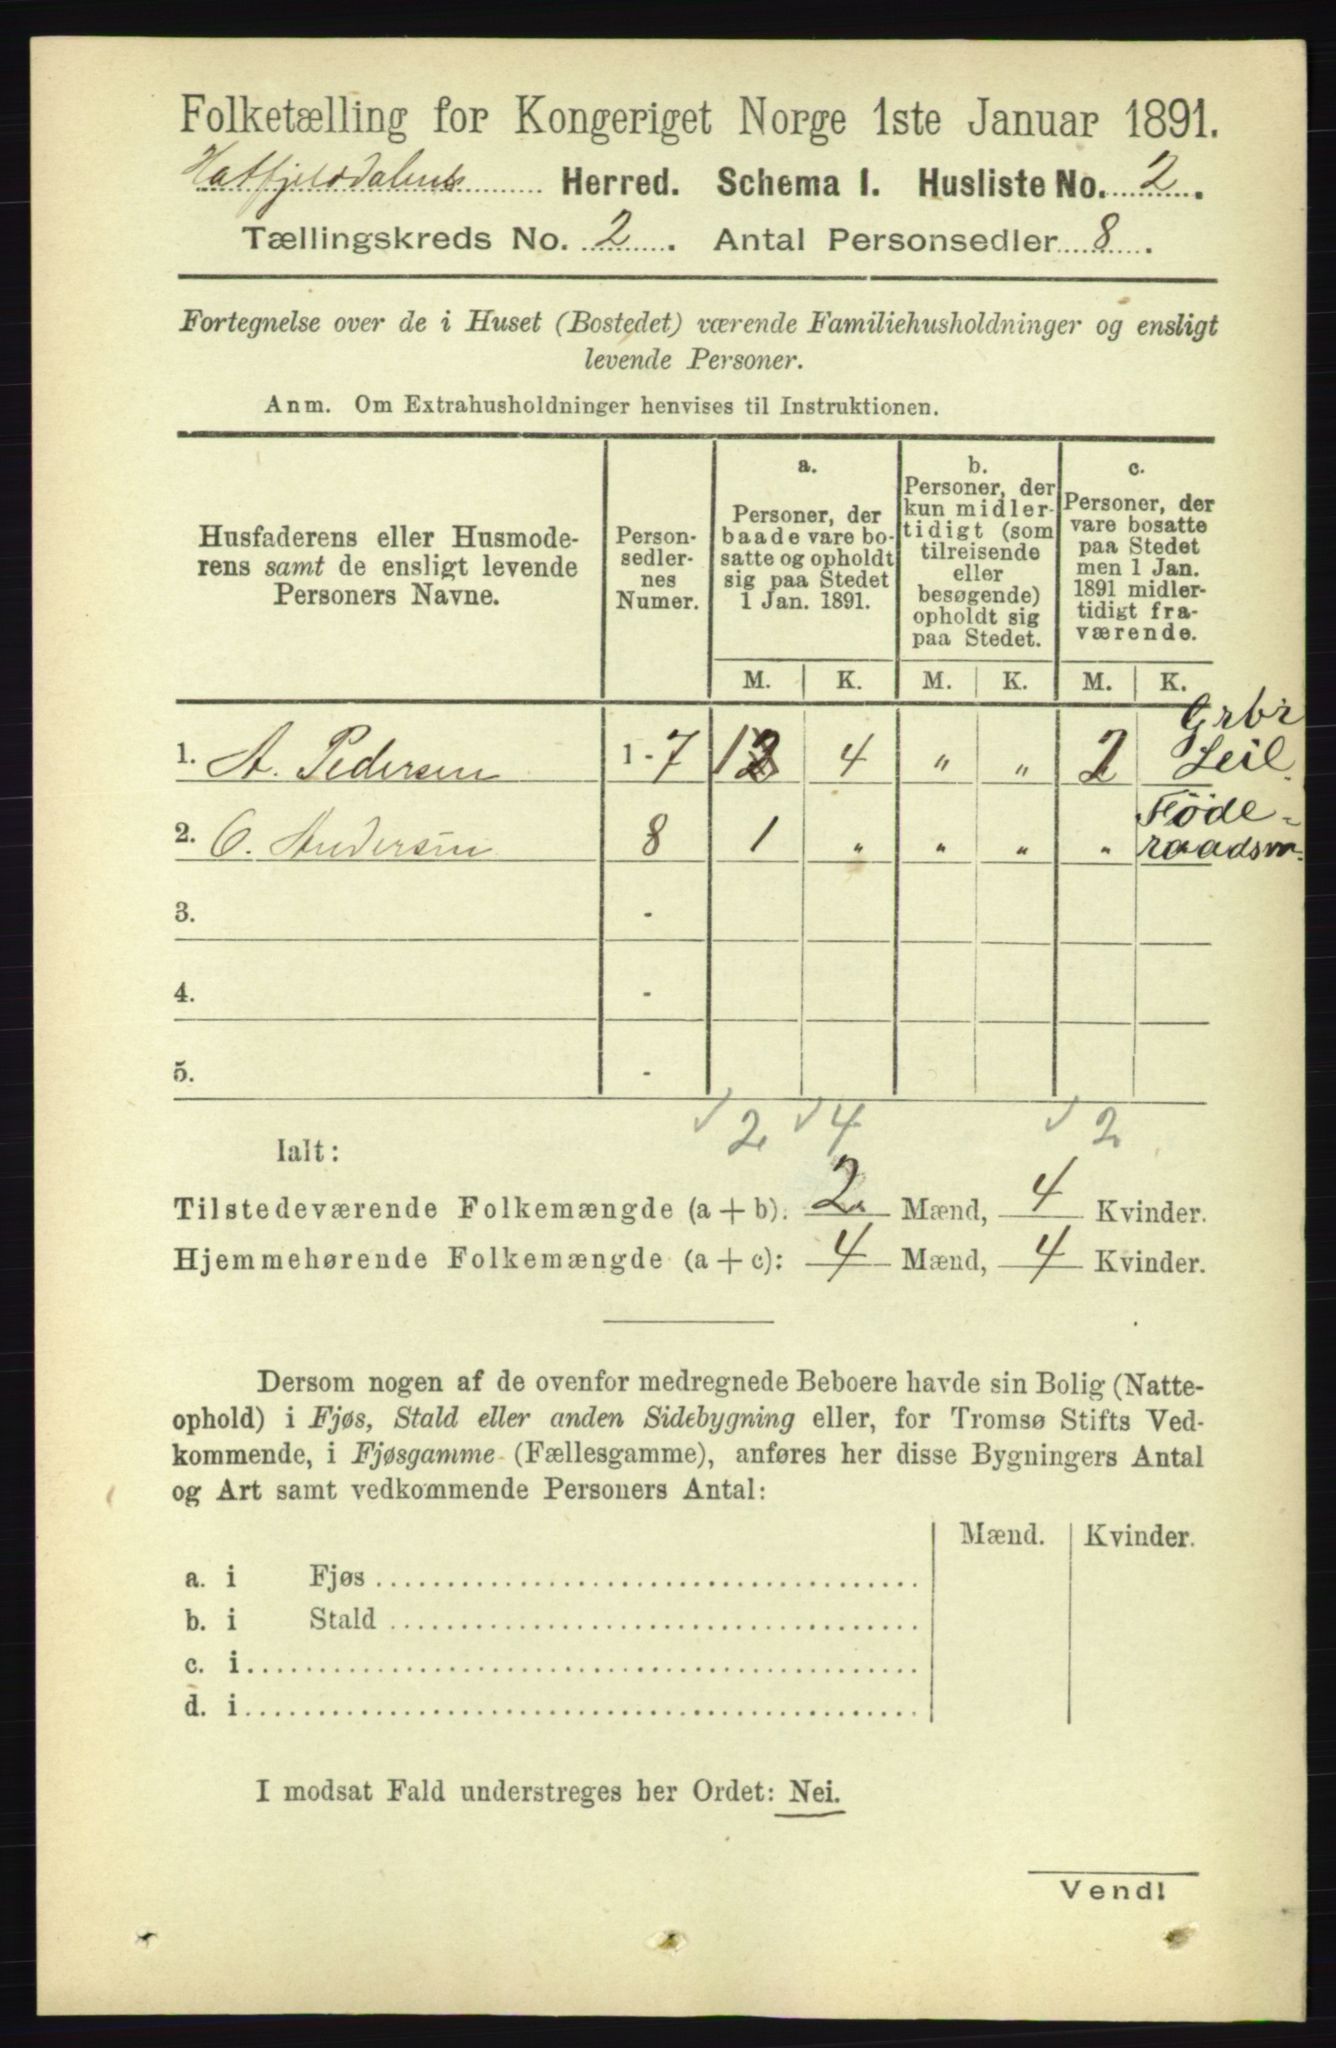 Folketælling for Kongeriget Norge 1ste Januar 1891.
Hatfjelddalens Herred. Schema I. Husliste No. 2.
Tællingskreds No. 2. Antal Personsedler 8.
Fortegnelse over de i Huset (Bostedet) værende Familiehusholdninger og ensligt
levende Personer.
Anm. Om Extrahusholdninger henvises til Instruktionen.
Husfaderens eller Husmode-
rens samt de ensligt levende
Personers Navne.
Person-
sedler-
nes
Numer.
a.
Personer, der
baade vare bo-
satte og opholdt
sig paa Stedet
1 Jan. 1891.
b.
Personer, der
kun midler-
tidigt (som
tilreisende
eller
besøgende)
opholdt sig
paa Stedet.
c.
Personer, der
vare bosatte
paa Stedet
men 1 Jan.
1891 midler-
tidigt fra-
værende.
M. K. M. K. M. K.
Grbr
1. A. Pedersen 1-7 1 4 " " 2 Leil.
Föde-
2. O. Andersen 8 1 " " " " raadsm.
3. -
4. -
5. -
2 4 2
Ialt:
Tilstedeværende Folkemængde (a + b): 2 Mænd, 4 Kvinder.
Hjemmehørende Folkemængde (a + c): 4 Mænd, 4 Kvinder.
Dersom nogen af de ovenfor medregnede Beboere havde sin Bolig (Natte-
ophold) i Fjøs, Stald eller anden Sidebygning eller, for Tromsø Stifts Ved-
kommende, i Fjøsgamme (Fællesgamme), anføres her disse Bygningers Antal
og Art samt vedkommende Personers Antal:
Mænd. Kvinder.
a. i Fjøs
b. i Stald
c. i
d. i
I modsat Fald understreges her Ordet: Nei.
Vend!